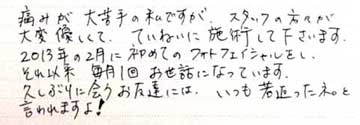 痛みが大苦手の私ですが、スタッフの方々が
大変優しくて、ていねいに施術して下さいます。
2013年の2月に初めてのフォトフェイシャルをし、
それ以来 毎月1回お世話になっています。
久しぶりに会うお友達には、いつも若返ったネ。と
言われますよ!